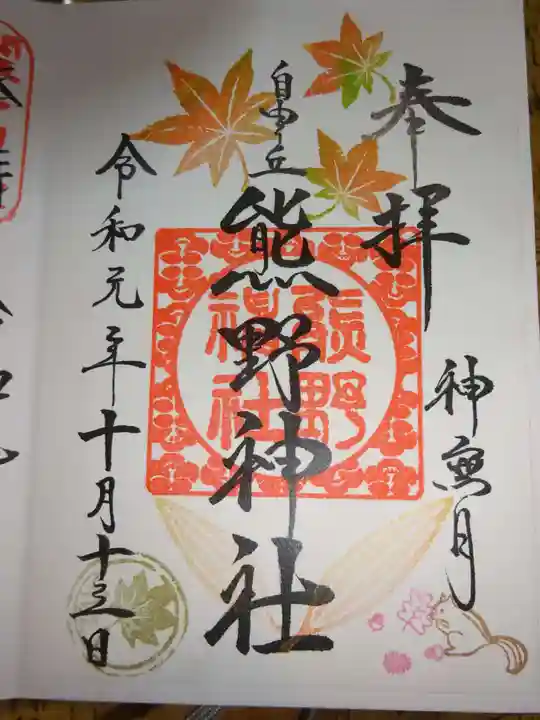 奉拝
神無月
自由ヶ丘
熊野神社
熊野
神社
令和元年十月十三日